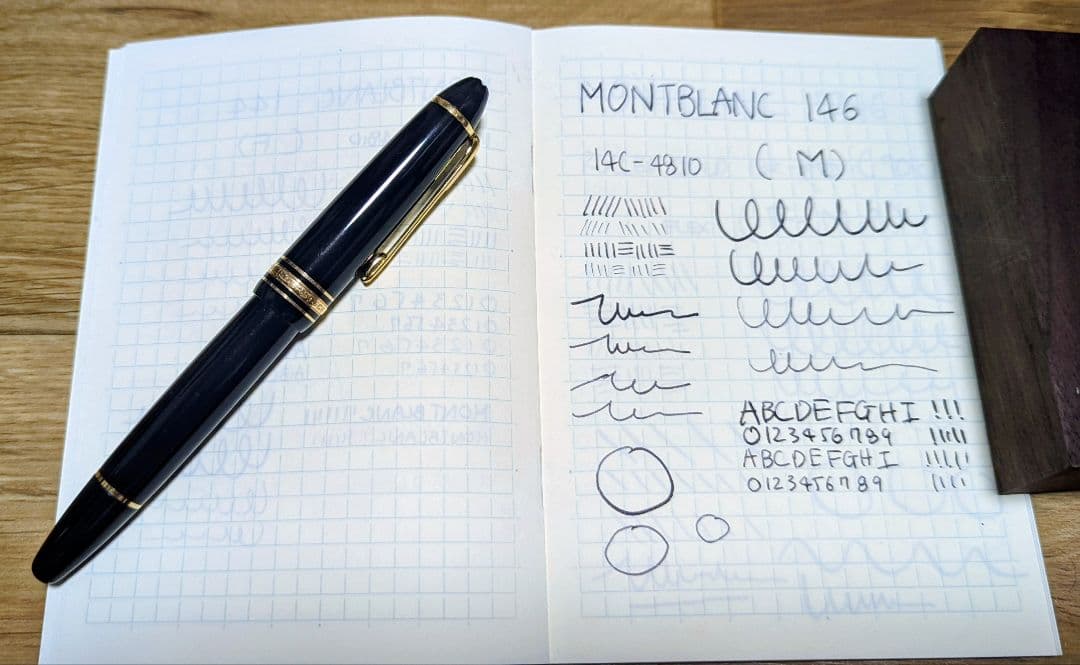 MONTBLANC 146
14C-4810 (M)
ABCDEFGHI !!!
0123456789
ABCDEFGHI
0123456789